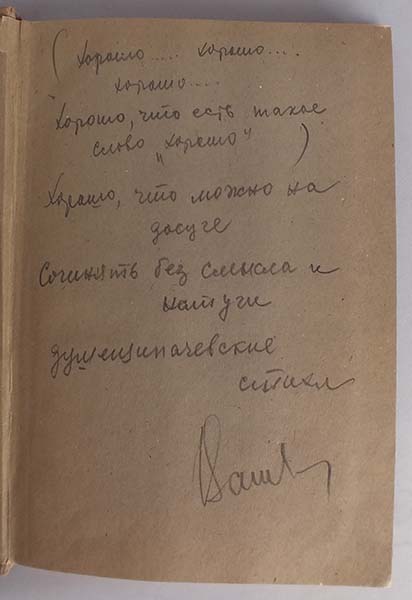 (Хорошо..... хорошо....
хорошо....
Хорошо, что есть такое
слово „хорошо")
Хорошо, что можно на
досуге
Сочинять без смысла и
натуги
душещипачевские
стихи